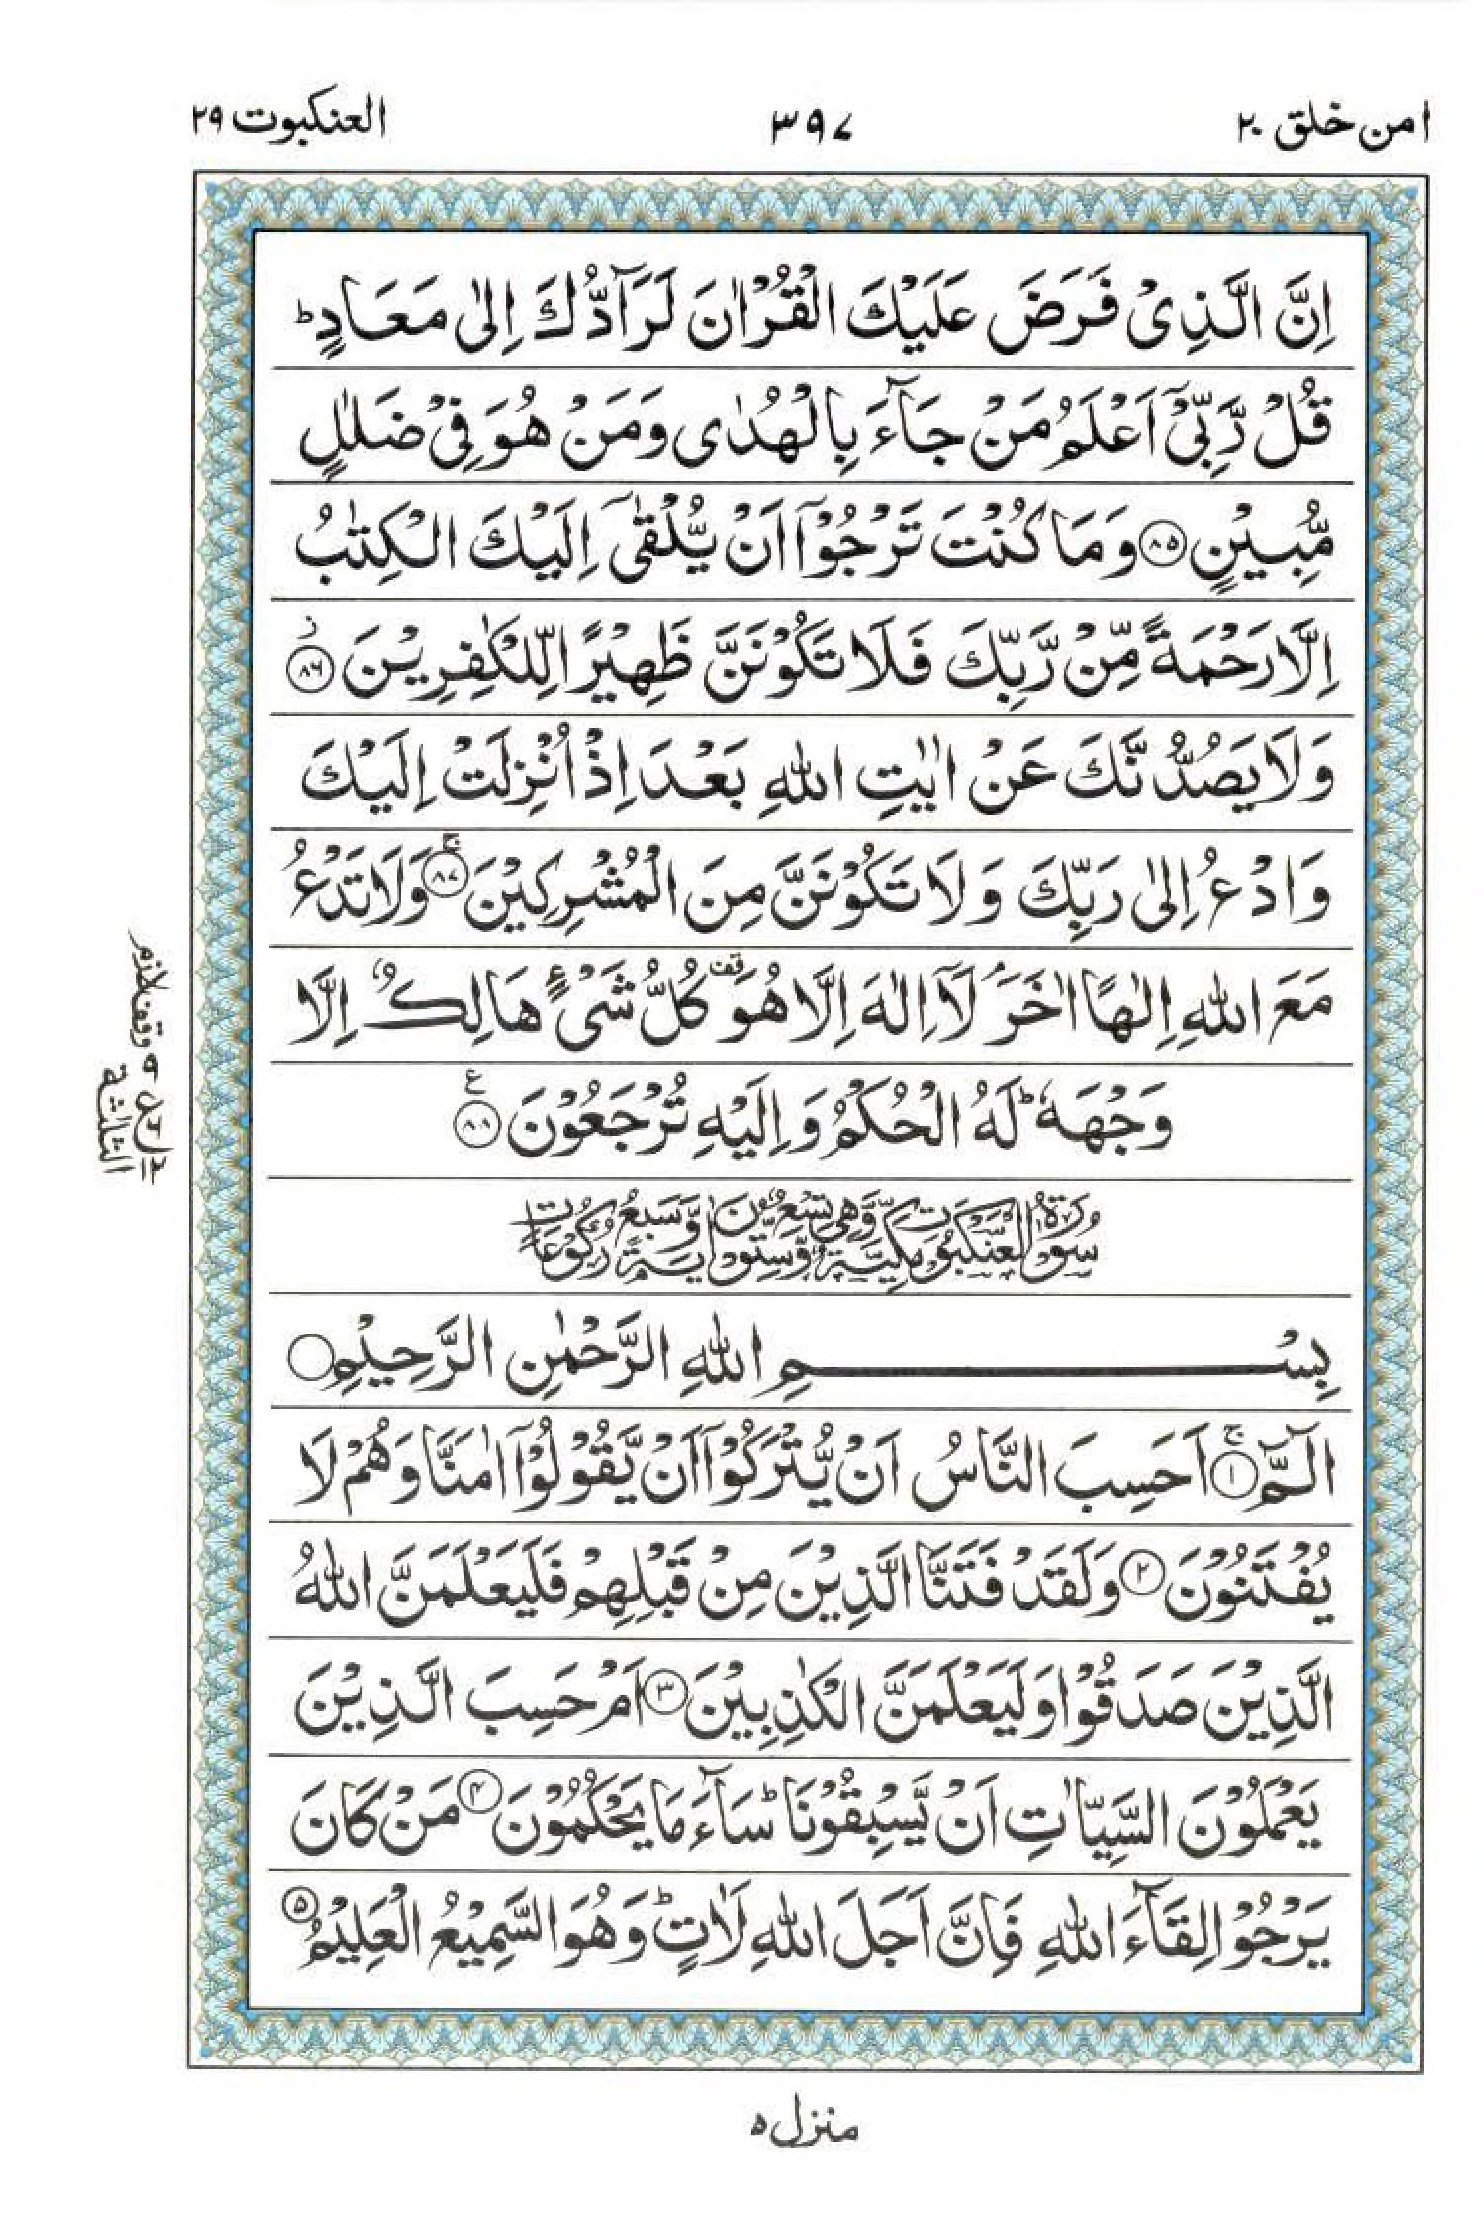 امن خلق ۲۰
۳۹۷
العنكبوت ۲۹
اِنَّ الَّذِىْ فَرَضَ عَلَيْكَ الْقُرْاٰنَ لَرَآدُّكَ اِلٰى مَعَادٍ ؕ
قُلْ رَّبِّىْۤ اَعْلَمُ مَنْ جَآءَ بِالْهُدٰى وَمَنْ هُوَ فِىْ ضَلٰلٍ
مُّبِيْنٍ ۝۸۵ وَمَا كُنْتَ تَرْجُوْۤا اَنْ يُّلْقٰۤى اِلَيْكَ الْكِتٰبُ
اِلَّا رَحْمَةً مِّنْ رَّبِّكَ فَلَا تَكُوْنَنَّ ظَهِيْرًا لِّلْكٰفِرِيْنَ ؗ ۝۸۶
وَلَا يَصُدُّنَّكَ عَنْ اٰيٰتِ اللّٰهِ بَعْدَ اِذْ اُنْزِلَتْ اِلَيْكَ
وَادْعُ اِلٰى رَبِّكَ وَلَا تَكُوْنَنَّ مِنَ الْمُشْرِكِيْنَ ۚ ۝۸۷ وَلَا تَدْعُ
مَعَ اللّٰهِ اِلٰهًا اٰخَرَ ۘ لَاۤ اِلٰهَ اِلَّا هُوَ قف كُلُّ شَىْءٍ هَالِكٌ اِلَّا
وَجْهَهٗ ؕ لَهُ الْحُكْمُ وَاِلَيْهِ تُرْجَعُوْنَ ۝۸۸ ع
سُوْرَةُ الْعَنْكَبُوْتِ مَكِّيَّةٌ وَّهِىَ تِسْعٌ وَّسِتُّوْنَ اٰيَةً وَّسَبْعُ رُكُوْعَاتٍ
بِسْمِ اللّٰهِ الرَّحْمٰنِ الرَّحِيْمِ ۝
الٓمّٓ ۚ ۝۱ اَحَسِبَ النَّاسُ اَنْ يُّتْرَكُوْۤا اَنْ يَّقُوْلُوْۤا اٰمَنَّا وَهُمْ لَا
يُفْتَنُوْنَ ۝۲ وَلَقَدْ فَتَنَّا الَّذِيْنَ مِنْ قَبْلِهِمْ فَلَيَعْلَمَنَّ اللّٰهُ
الَّذِيْنَ صَدَقُوْا وَلَيَعْلَمَنَّ الْكٰذِبِيْنَ ۝۳ اَمْ حَسِبَ الَّذِيْنَ
يَعْمَلُوْنَ السَّيِّاٰتِ اَنْ يَّسْبِقُوْنَا ؕ سَآءَ مَا يَحْكُمُوْنَ ۝۴ مَنْ كَانَ
يَرْجُوْا لِقَآءَ اللّٰهِ فَاِنَّ اَجَلَ اللّٰهِ لَاٰتٍ ؕ وَهُوَ السَّمِيْعُ الْعَلِيْمُ ۝۵
وقف لازم
ع
الثلثة
منزل ۵